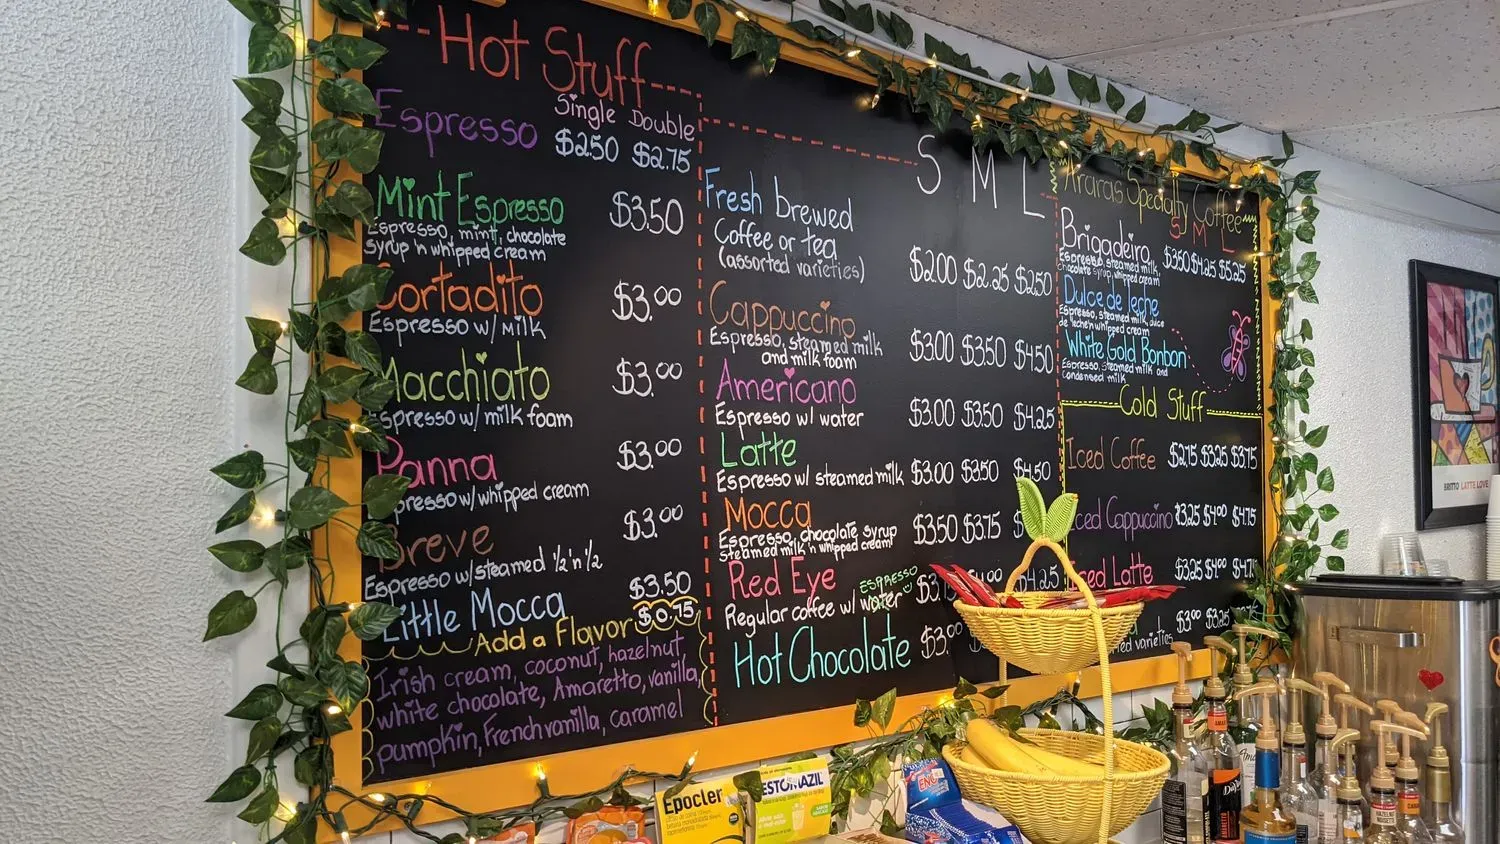 Hot Stuff
Single Double
Espresso $2.50 $2.75
Mint Espresso $3.50
Espresso, mint, chocolate
syrup 'n whipped cream
Cortadito $3.00
Espresso w/ milk
Macchiato $3.00
Espresso w/ milk foam
Panna $3.00
Espresso w/ whipped cream
Breve $3.00
Espresso w/ steamed ½ 'n ½
Little Mocca $3.50
Add a Flavor $0.75
Irish cream, coconut, hazelnut,
white chocolate, Amaretto, vanilla,
pumpkin, French vanilla, caramel
S M L
Fresh brewed
Coffee or tea
(assorted varieties) $2.00 $2.25 $2.50
Cappuccino
Espresso, steamed milk
and milk foam $3.00 $3.50 $4.50
Americano
Espresso w/ water $3.00 $3.50 $4.25
Latte
Espresso w/ steamed milk $3.00 $3.50 $4.50
Mocca
Espresso, chocolate syrup
steamed milk 'n whipped cream $3.50 $3.75
Red Eye ESPRESSO
Regular coffee w/ water $4.25
Hot Chocolate $3.00
Araras Specialty Coffee
S M L
Brigadeiro $3.50 $4.25 $5.25
Espresso, steamed milk,
chocolate syrup, whipped cream
Dulce de leche
Espresso, steamed milk, dulce
de leche 'n whipped cream
White Gold Bonbon
Espresso, steamed milk and
condensed milk
Cold Stuff
Iced Coffee $2.75 $3.25 $3.75
Iced Cappuccino $3.25 $4.00 $4.75
Iced Latte $3.25 $4.00
$3.00 $3.25
varieties
BRITTO LATTE LOVE
Epocler
ESTOMAZIL
ENO